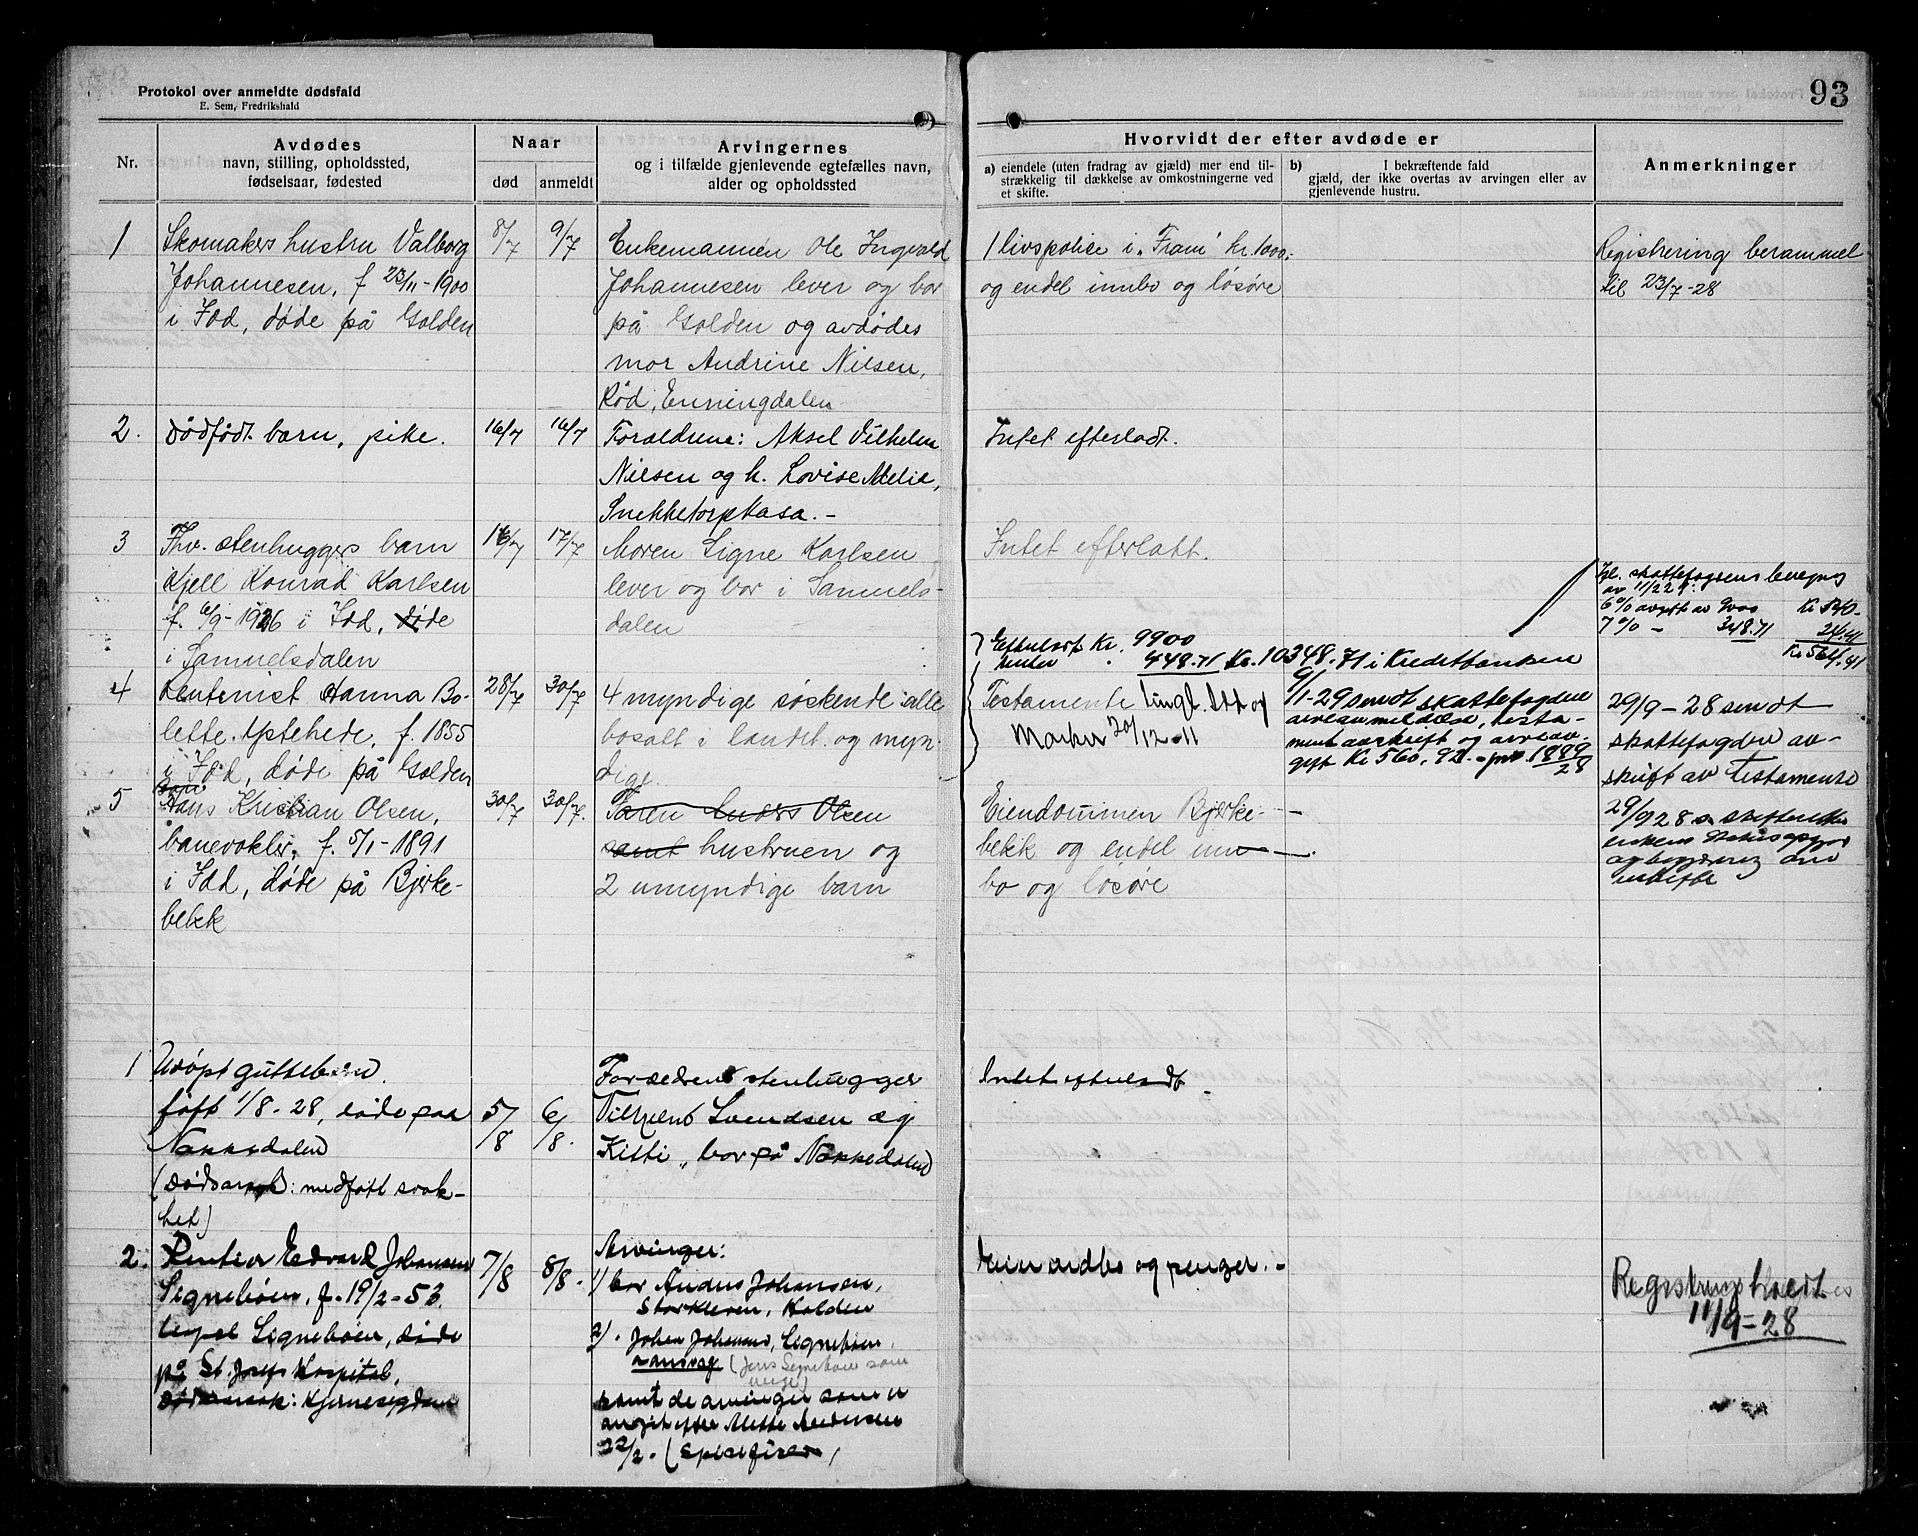 93
Protokol over anmeldte dødsfald
E. Sem, Fredrikshald
Nr.
Avdødes
navn, stilling, opholdssted,
fødselsaar, fødested
Naar
død
anmeldt
Arvingernes
og i tilfælde gjenlevende egtefælles navn,
alder og opholdssted
Hvorvidt der efter avdøde er
a) eiendele (uten fradrag av gjæld) mer end til-
strækkelig til dækkelse av omkostningerne ved
et skifte.
b) I bekræftende fald
gjæld, der ikke overtas av arvingen eller av
gjenlevende hustru.
Anmerkninger
1
Skomakers hustru Valborg
Johannesen, f 23/11-1900
i Idd, døde på Golden
8/7
9/7
Enkemannen Ole Ingvald
Johannesen lever og bor
på Golden og avdødes
mor Andrine Nilsen,
Rød, Enningdalen
1 livspolice i "Fram" kr. 1000.-
og endel innbo og løsøre
Registrering berammet
til 23/7-28
2.
Dødfødt barn, pike.
16/7
16/7
Foreldrene: Aksel Vilhelm
Nilsen og h. Lovise Melia,
Snekketorpkasa. -
Intet efterladt.
3
Fhv. stenhuggers barn
Kjell Konrad Karlsen
f. 6/9-1926 i Idd, døde
i Samuelsdalen
16/7
17/7
Moren Signe Karlsen
lever og bor i Samuels-
dalen
Intet efterlatt.
skattefogdens
av 11/2 29:
6% av 9900
7% - 348.71 24.41
Kr 564.41
4
Rentenist Hanna Bo-
lette Ystehede, f. 1855
i Idd, døde på Golden
28/7
30/7
4 myndige søskende alle
bosatt i landet og myn-
dige.
Efterladt Kr. 9900
renter " 448.71 Kr. 10348.71 i Kreditbanken
Testamente tingl. Idd og
Marker 20/12-11
9/1-29 sendt skattefogden
arveanmeldelse, testa-
mentavskrift og arveav-
gift Kr 560,92. - jnr 1889/28
29/9-28 sendt
skattefogden av-
skrift av Testamente
5
Hans Kristian Olsen,
banevokter, f. 5/1-1891
i Idd, døde på Bjerke-
bekk
30/7
30/7.
Faren Anders Olsen
samt hustruen og
2 umyndige barn
Eiendommen Bjerke-
bekk og endel inn-
bo og løsøre
29/9 28 s. skifteretten
enkens
og begjæring om
uskifte
1
Udøpt guttebarn
født 1/8-28, døde paa
Nakkedalen
(Dødsarsak: medfødt svak-
het)
5/8
6/8.
Foreldrene stenhugger
Vilhelm Svendsen og
Kitti, bor på Nakkedalen
Intet efterladt -
2.
Rentier Edvard Johansen
Signebøen, f. 19/2-53.
Signebøen, døde
på St. Josefs Hospital,
Dødsarsak:
7/8
8/8.
Arvinger:
1) bror Anders Johansen,
Storkleven, Halden
2). Johan Johansen, Signebøen,
(Jens Signebøen som
verge)
samt de arvinger som er
angit efter Mette Andersen
22/2. (Spesifiser
innbo og penger. -
Registrering holdt
11/9-28